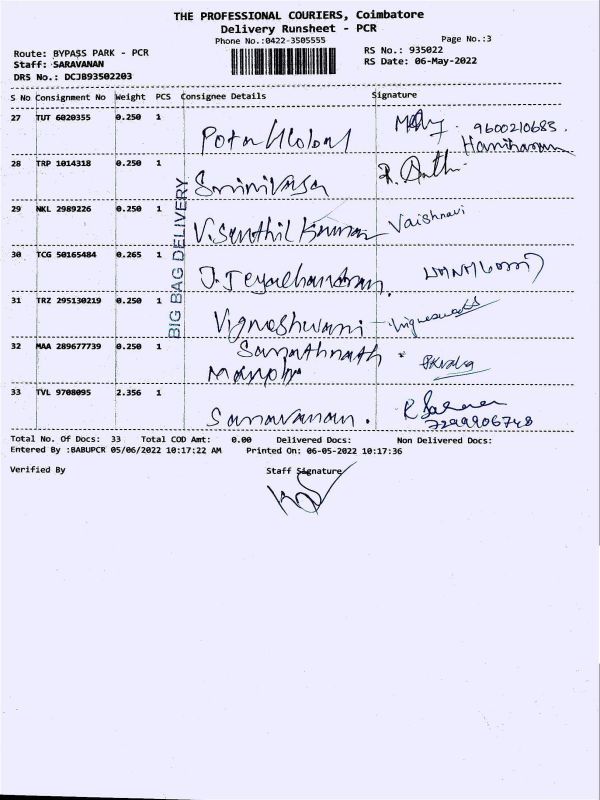 THE PROFESSIONAL COURIERS, Coimbatore
Delivery Runsheet - PCR
Phone No.:0422-3505555
Page No.:3
Route: BYPASS PARK - PCR
RS No.: 935022
Staff: SARAVANAN
RS Date: 06-May-2022
DRS No.: DCJ893502203
S No Consignment No Weight PCS Consignee Details Signature
27 TUT 6020355 0.250 1
9600210683.
Hariharan
28 TRP 1014318 0.250 1
Srinivasa
29 NKL 2989226 0.250 1
V. Senthil Kumar Vaishnavi
30 TCG 50165484 0.265 1
J. Jeyachandran.
31 TRZ 295130219 0.250 1
Vigneshwari
32 MAA 289677739 0.250 1
33 TVL 9708095 2.356 1
Saravanan.
7299906748
BIG BAG DELIVERY
Total No. Of Docs: 33 Total COD Amt: 0.00 Delivered Docs: Non Delivered Docs:
Entered By :BABUPCR 05/06/2022 10:17:22 AM Printed On: 06-05-2022 10:17:36
Verified By Staff Signature